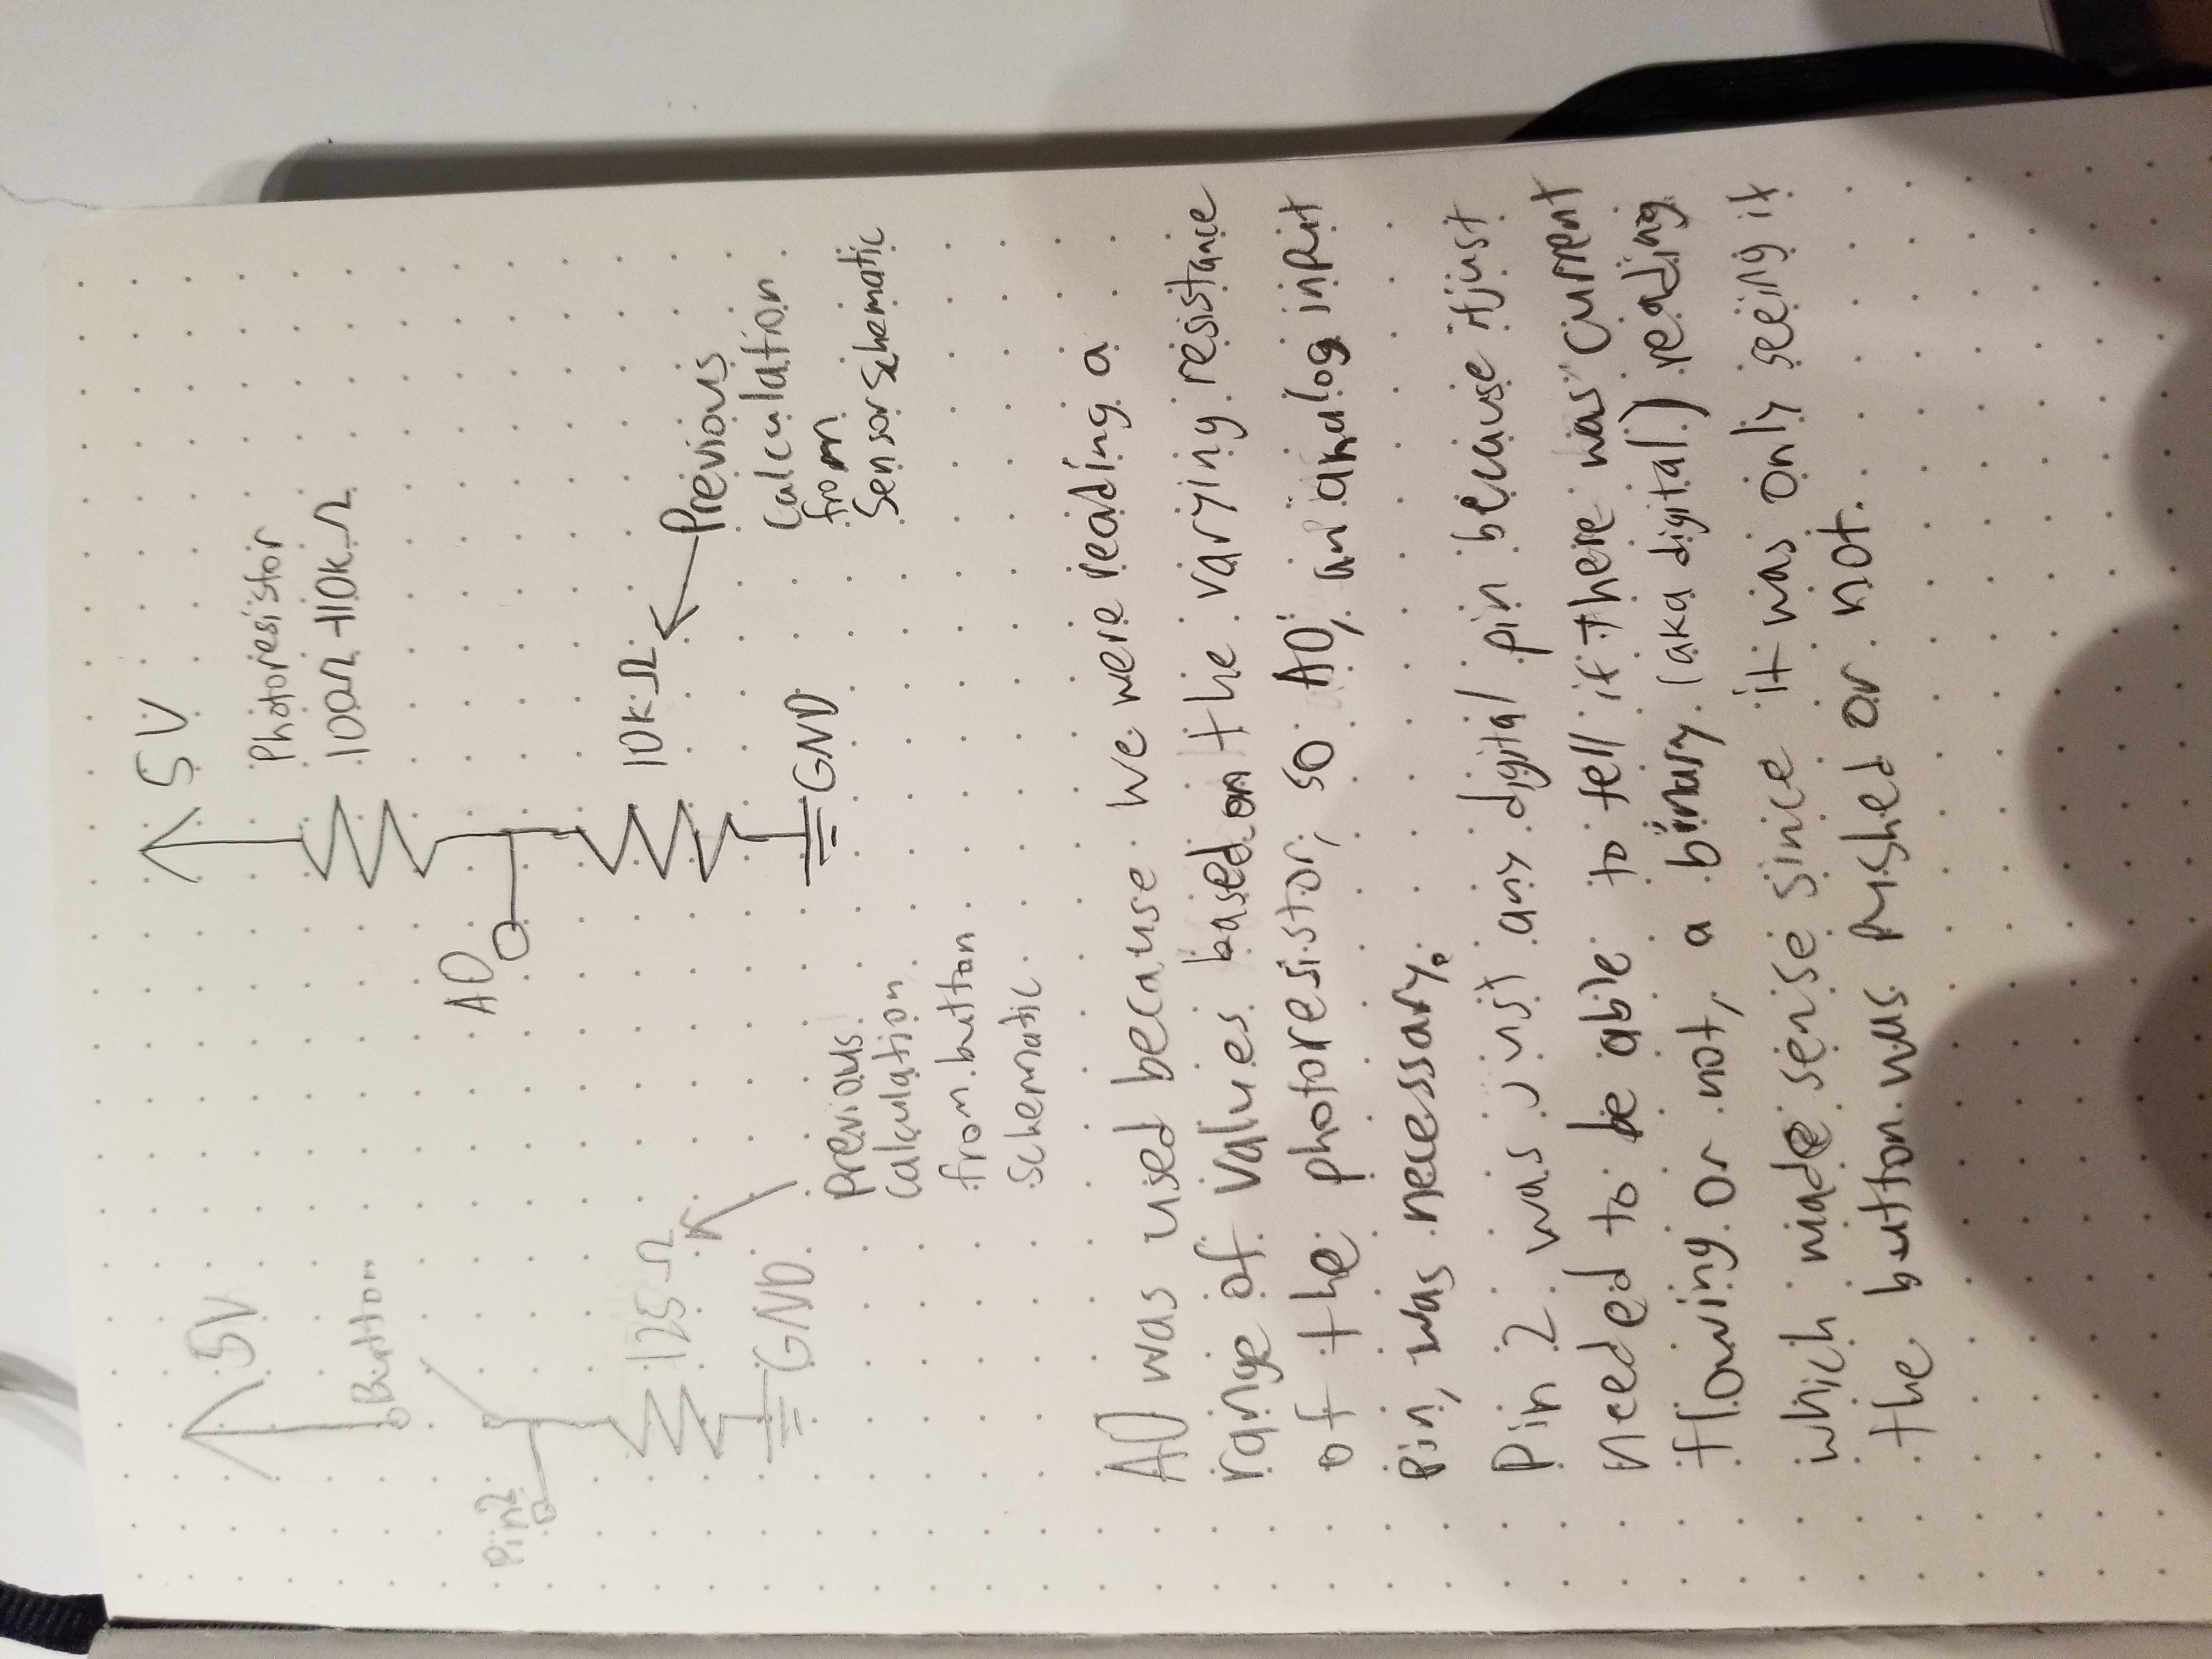 5V
Button
Pin2
125Ω
GND
Previous
Calculation
from button
Schematic
5V
Photoresistor
100Ω-10kΩ
A0
10kΩ
GND
Previous
Calculation
from
Sensor Schematic
A0 was used because we were reading a
range of values based on the varying resistance
of the photoresistor, so A0, an analog input
pin, was necessary.
Pin 2 was just any digital pin because it just
needed to be able to tell if there was current
flowing or not, a binary (aka digital) reading
which made sense since it was only seeing if
the button was pushed or not.